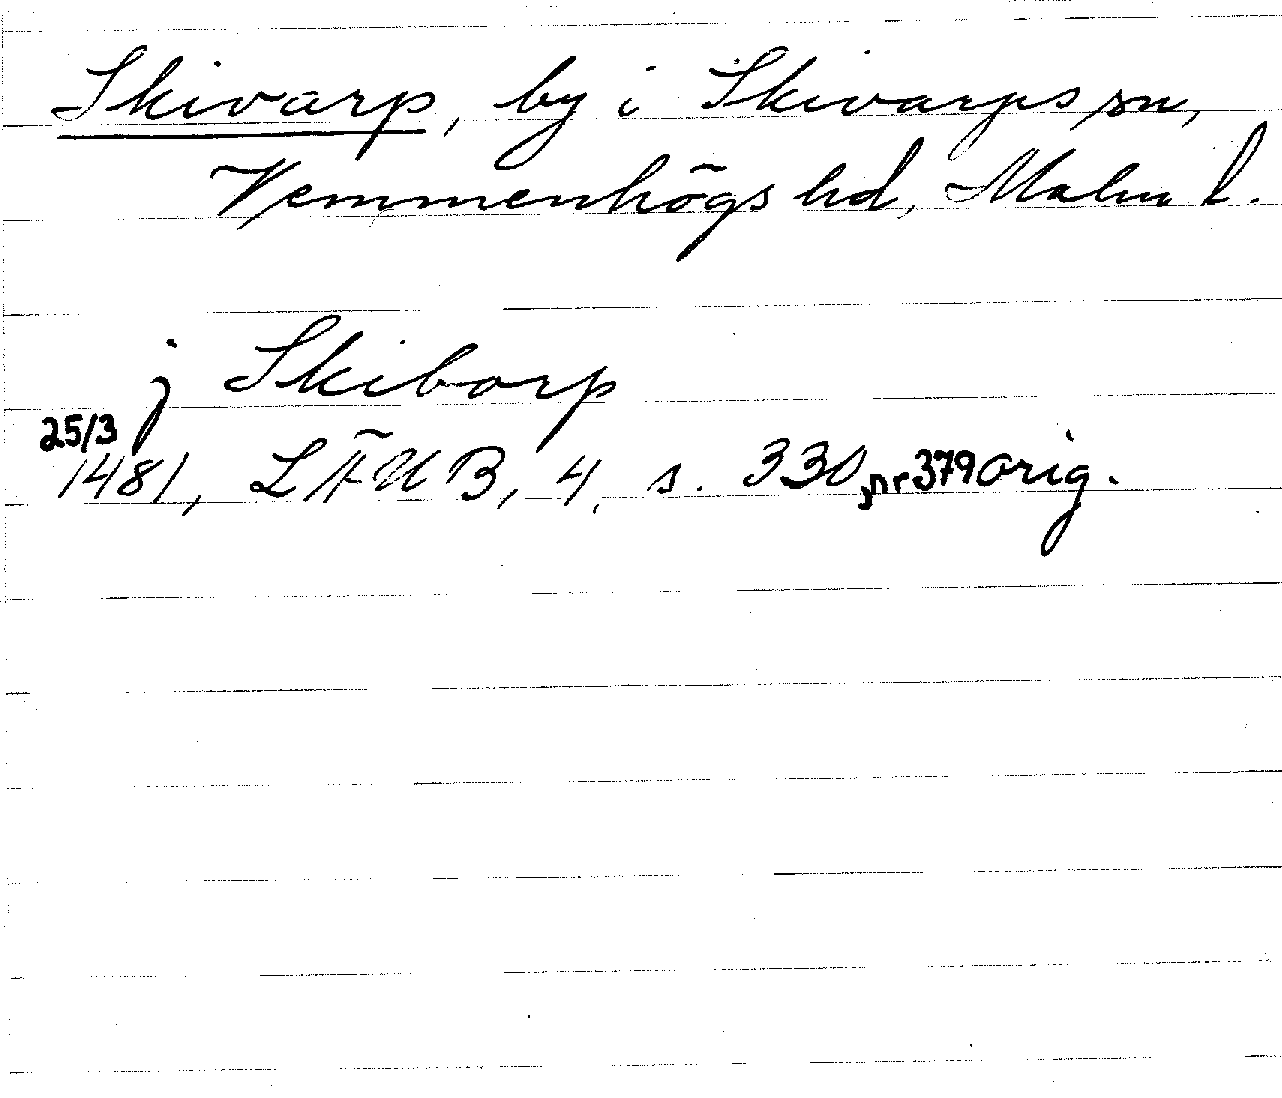 Skivarp, by i Skivarps sn,
Vemmenhögs hd, Malm l.
j Skiborp
25/3
1481, LÄUB, 4, s. 330, nr 379 orig.